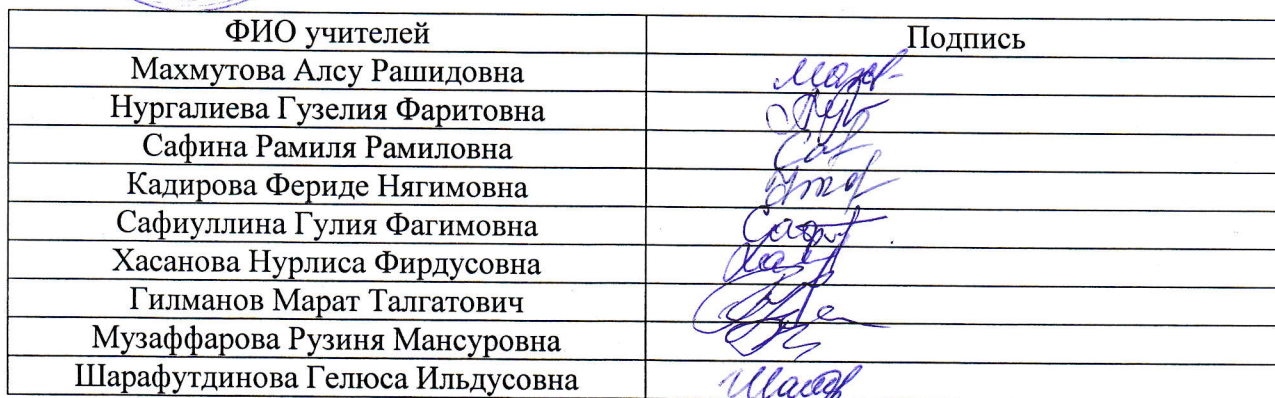 ФИО учителей Подпись
Махмутова Алсу Рашидовна
Нургалиева Гузелия Фаритовна
Сафина Рамиля Рамиловна
Кадирова Фериде Нягимовна
Сафиуллина Гулия Фагимовна
Хасанова Нурлиса Фирдусовна
Гилманов Марат Талгатович
Музаффарова Рузиня Мансуровна
Шарафутдинова Гелюса Ильдусовна